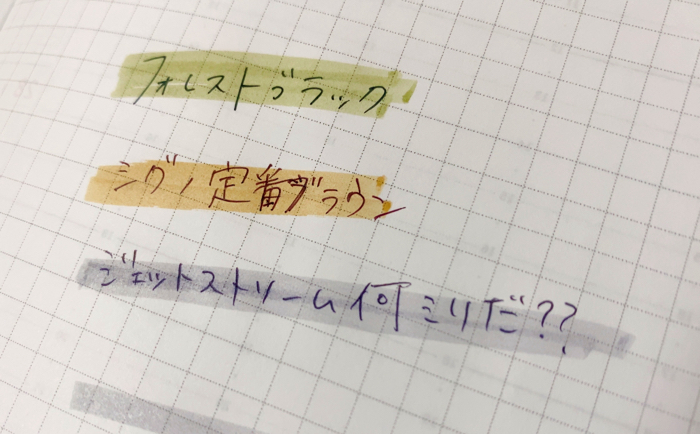 フォレストブラック
シグノ定番ブラウン
ジェットストリーム何ミリだ??